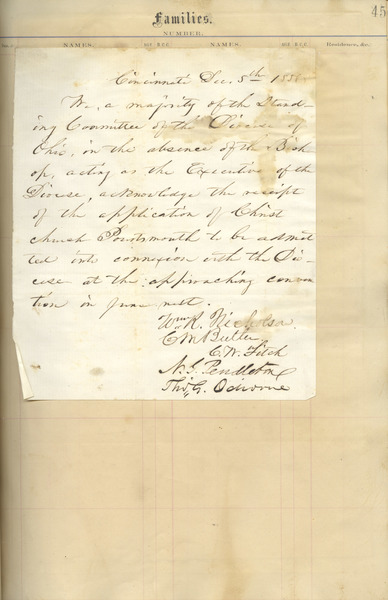 45
Families.
NUMBER.
NAMES. NAMES. Residence, &c.
Cincinnati Dec. 5th 185
We, a majority of the Stand-
ing Committee of the Diocese of
Ohio, in the absence of the Bish
op, acting as the Executive of the
Diocese, acknowledge the receipt
of the application of Christ
church Portsmouth to be admit
ted into connexion with the Dio-
cese at the approaching conven
tion in June next.
Wm R. Nicholson
C M Butler
C. W. Fitch
N. G. Pendleton
Tho. G. Odiorne